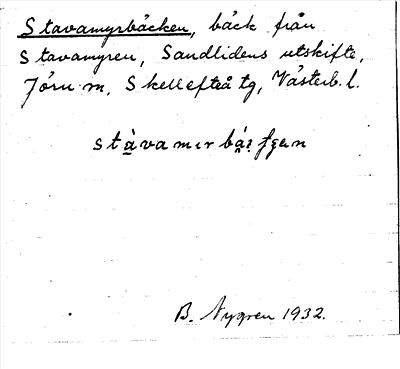 Stavamyrbäcken, bäck från
Stavamyren, Sandlidens utskifte,
Jörn m, Skellefteå tg, Västerb. l.
B. Nygren 1932.